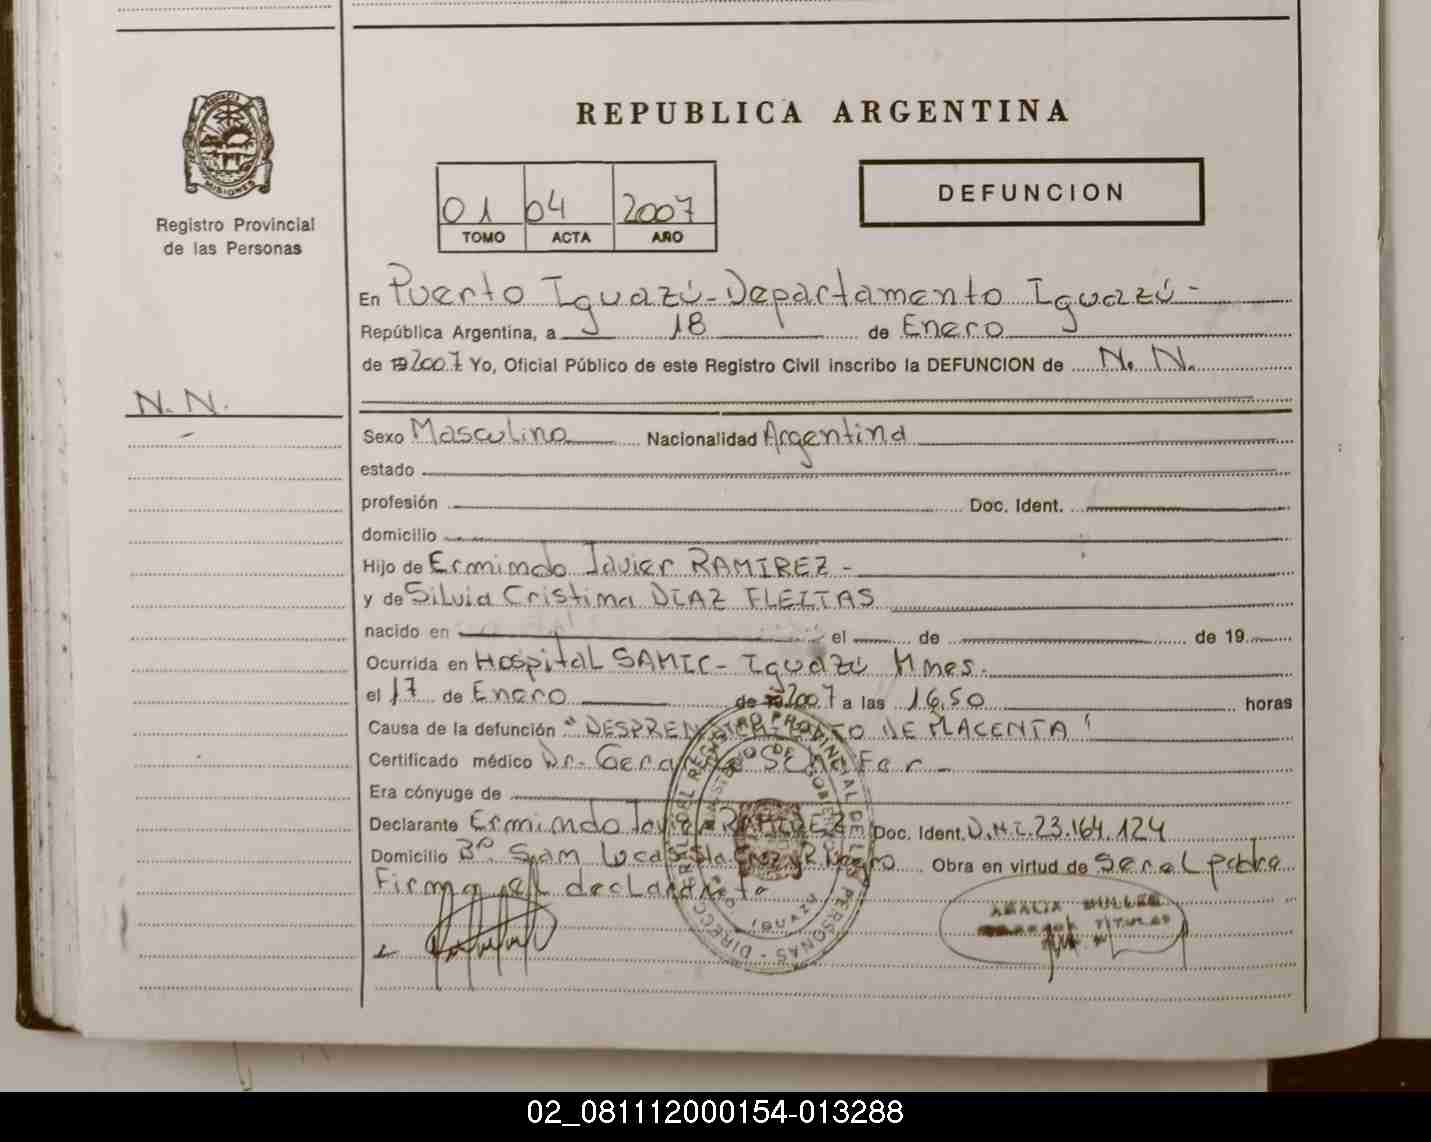 PROVINCIA
MISIONES
Registro Provincial
de las Personas
REPUBLICA ARGENTINA
01 04 2007
TOMO ACTA AÑO
DEFUNCION
En Puerto Iguazú - Departamento Iguazú -
República Argentina, a 18 de Enero
de 19 2007 Yo, Oficial Público de este Registro Civil inscribo la DEFUNCION de N. N.
N. N.
Sexo Masculino Nacionalidad Argentina
estado
profesión Doc. Ident.
domicilio
Hijo de Ermindo Javier RAMIREZ -
y de Silvia Cristina DIAZ FLEITAS
nacido en el de de 19
Ocurrida en Hospital SAMIC - Iguazú Mnes.
el 17 de Enero de 19 2007 a las 16,50 horas
Causa de la defunción "DESPRENDIMIENTO DE PLACENTA"
Certificado médico Dr.
Era cónyuge de
Declarante Ermindo Javier RAMIREZ Doc. Ident. D.N.I. 23.164.124
Domicilio Bº San Lucas Sta Cruz y R. Negro Obra en virtud de Ser el padre
Firma el declarante
DIRECCION GRAL. DEL REGISTRO PROVINCIAL DE LAS PERSONAS
MINISTERIO DE GOBIERNO
IGUAZU
AMALIA MULLER
TITULAR
02_081112000154-013288